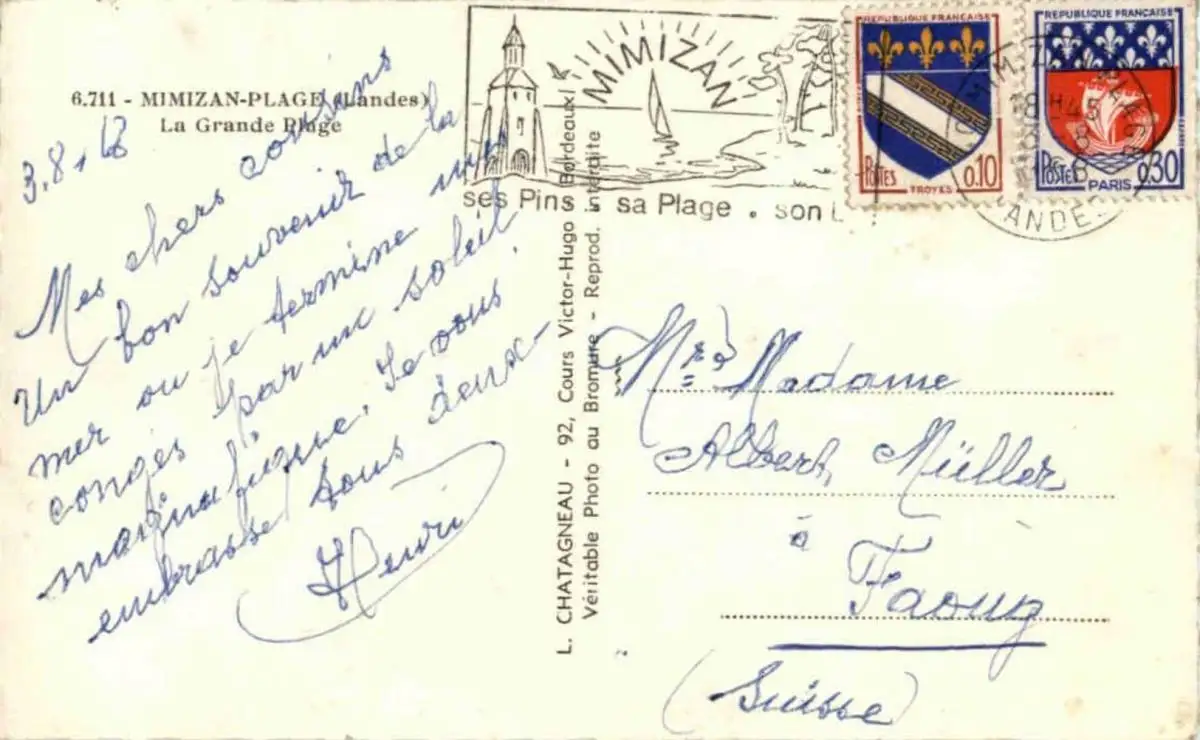 6.711 - MIMIZAN-PLAGE (Landes)
La Grande Plage
3.8.68
Mes chers cousins
Un bon souvenir de la
mer ou je termine mes
congés par un soleil
magnifique. Je vous
embrasse tous deux-
Henri
L. CHATAGNEAU - 92, Cours Victor-Hugo (Bordeaux)
Véritable Photo au Bromure - Reprod. Interdite
MIMIZAN
ses Pins . sa Plage . son L
REPUBLIQUE FRANÇAISE
POSTES
0.10
TROYES
REPUBLIQUE FRANÇAISE
POSTES
0,30
PARIS
18H45
LANDES
Mr & Madame
Albert Müller
à
Faoug
(Suisse)